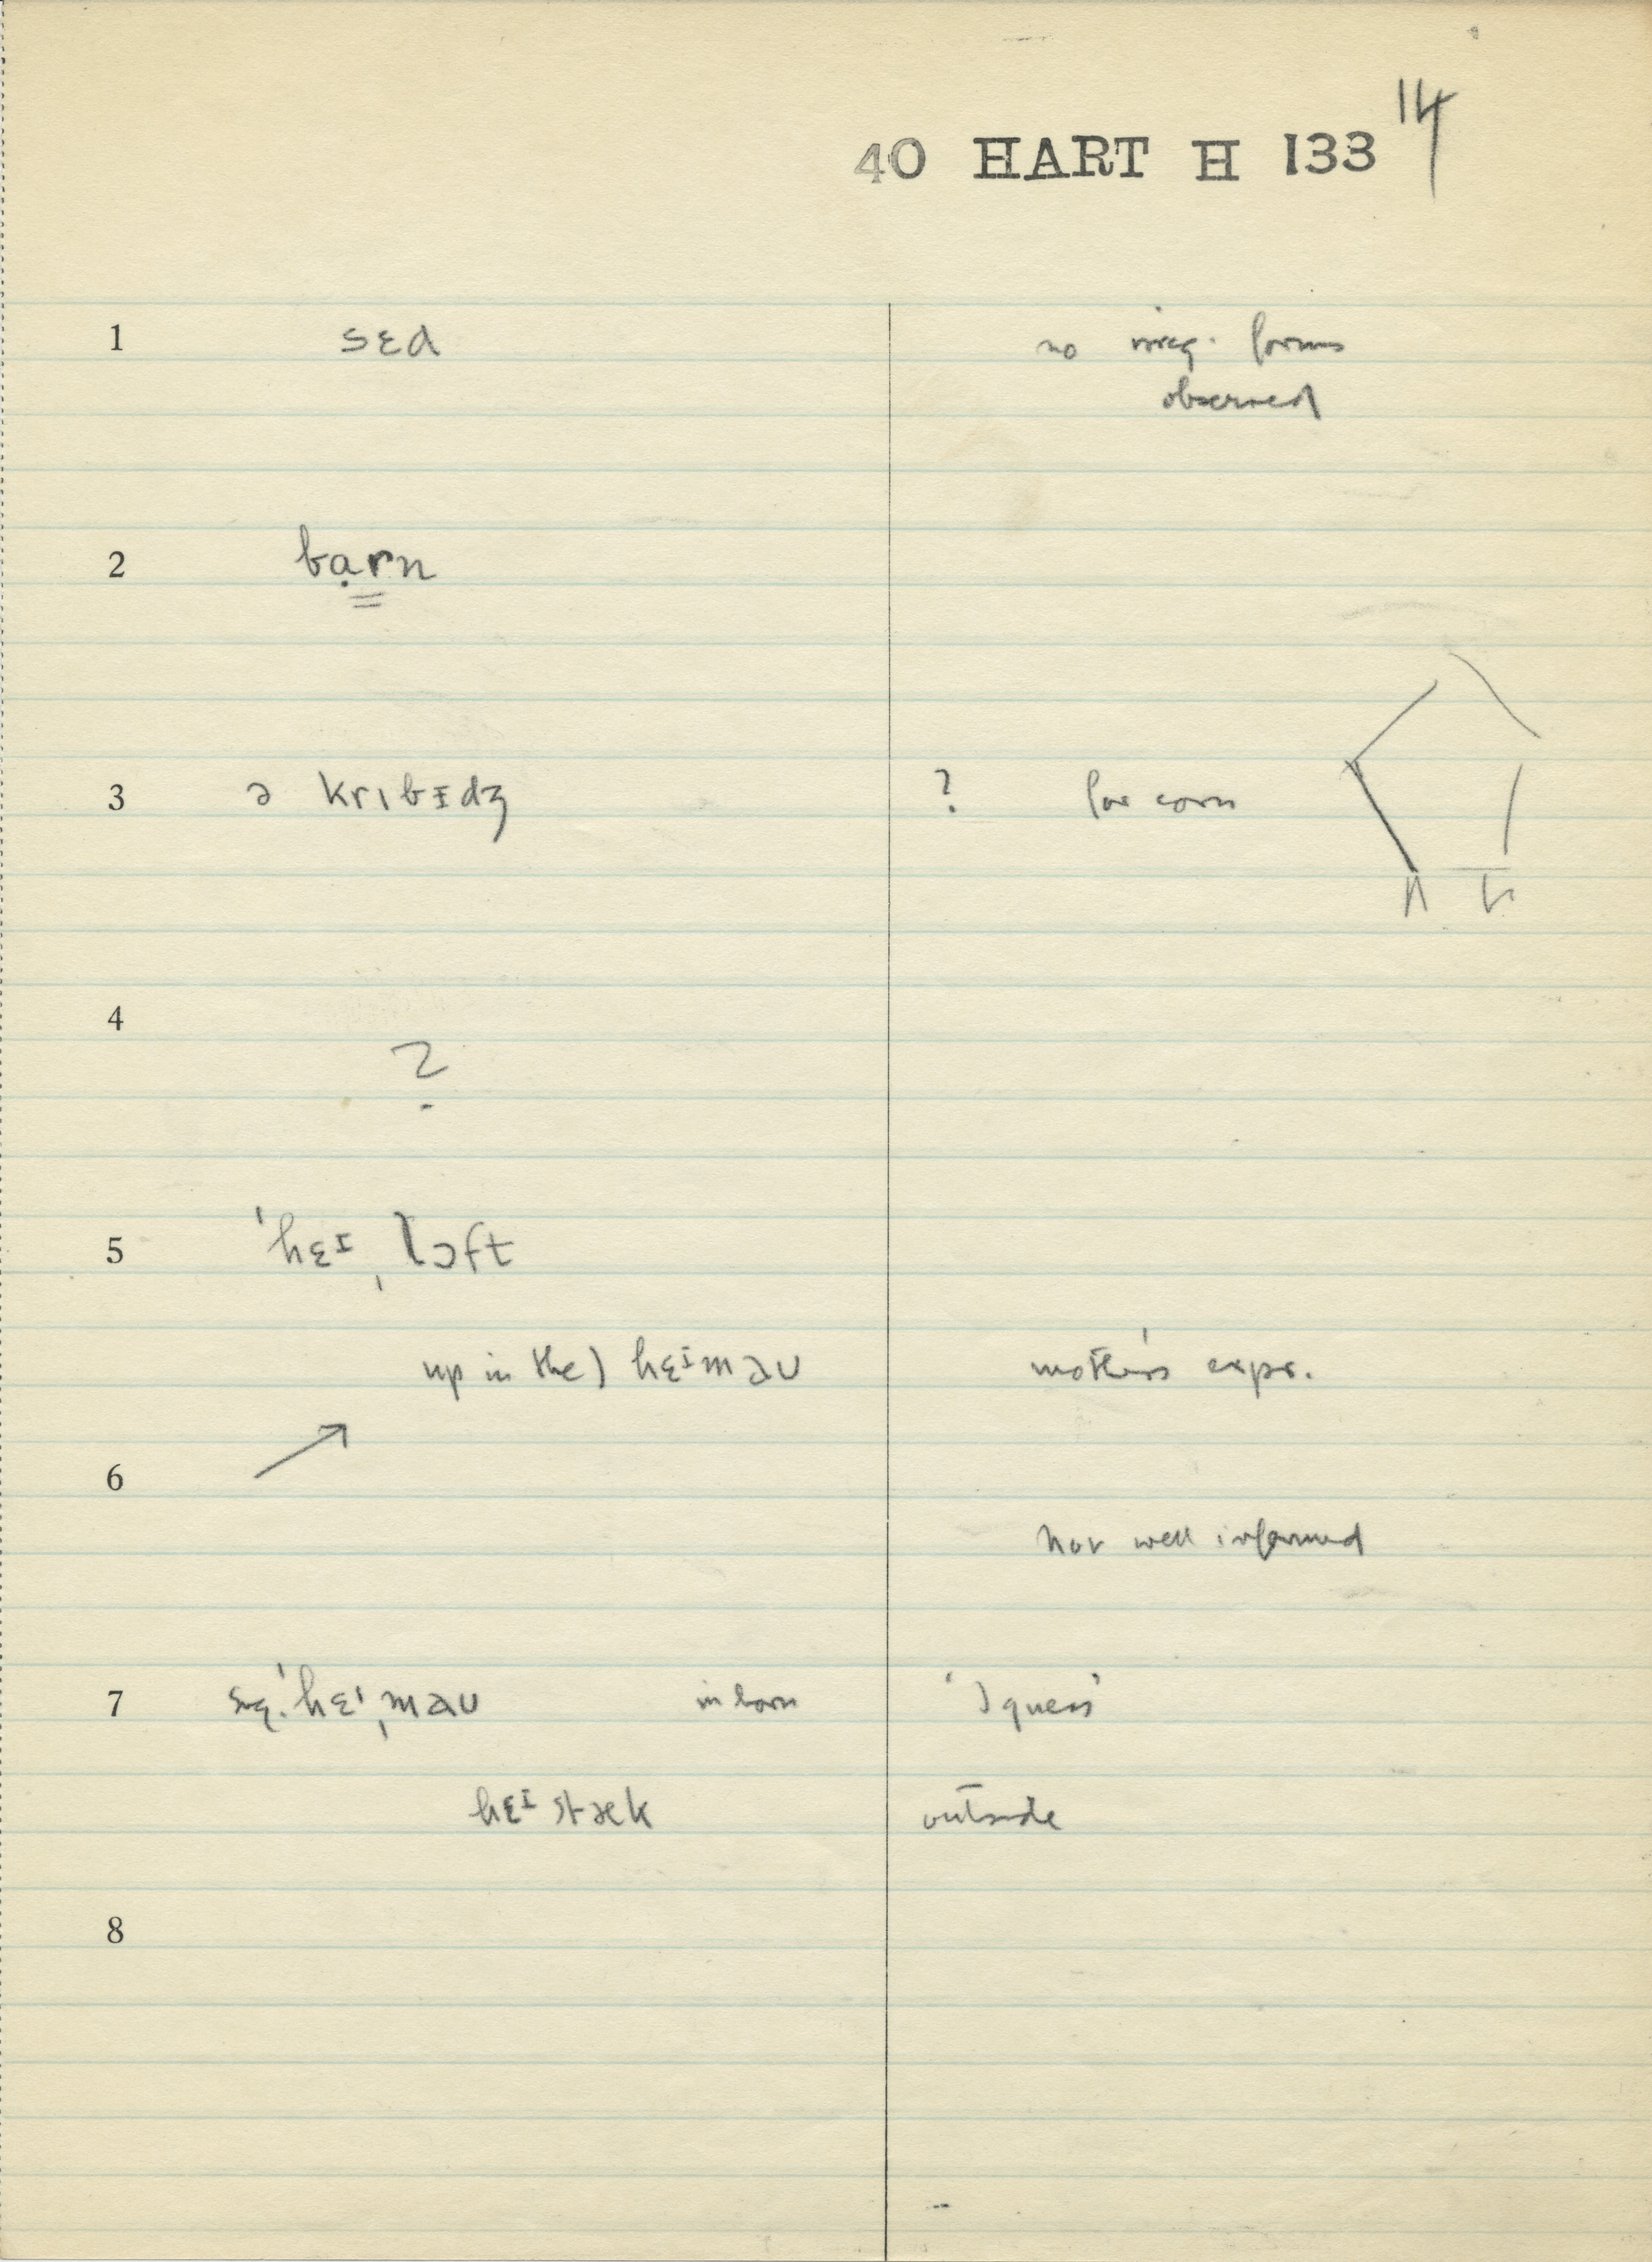 40 HART H 133 14
1 sɛd no irreg. forms
observed
2 bạrn
3 ə krɪbᵻdʒ ? for corn
4
?
5 ˈhɛᵻ ˌlɔft
up in the) hɛᵻmaʊ mother's expr.
6
not well informed
7 sug. ˈhɛᶦˌmaʊ in barn 'I guess'
hɛᵻstæk outside
8